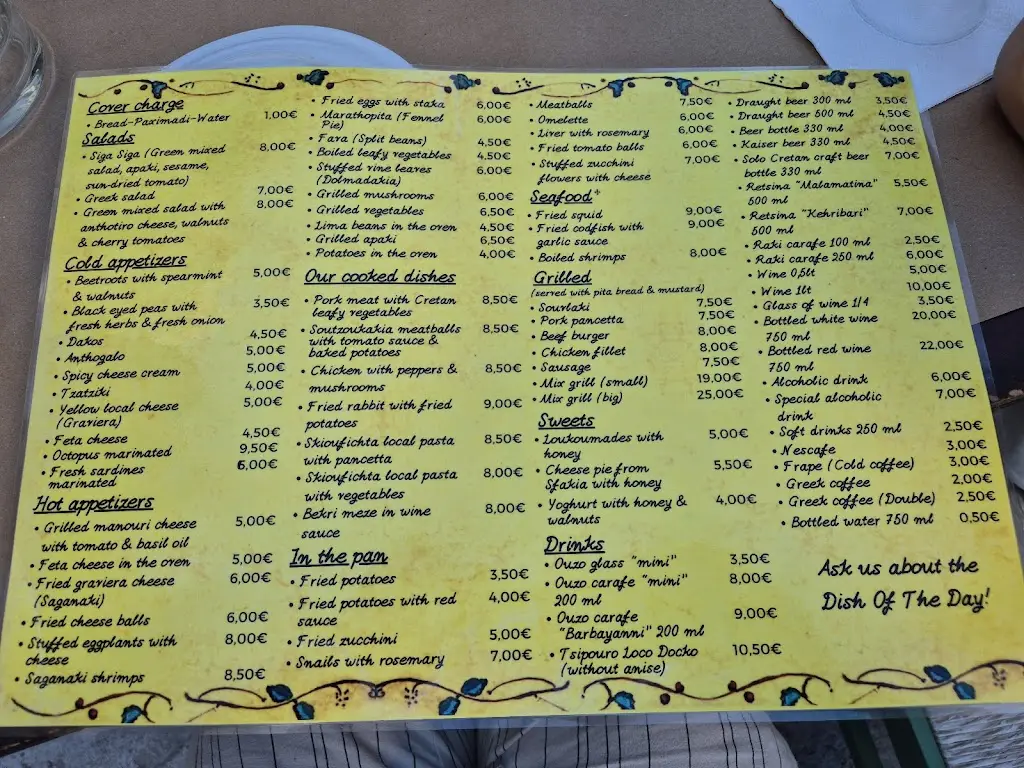 Cover charge
• Bread-Paximadi-Water 1,00€
Salads
• Siga Siga (Green mixed 8,00€
salad, apaki, sesame,
sun-dried tomato)
• Greek salad 7,00€
• Green mixed salad with 8,00€
anthotiro cheese, walnuts
& cherry tomatoes
Cold appetizers
• Beetroots with spearmint 5,00€
& walnuts
• Black eyed peas with 3,50€
fresh herbs & fresh onion
• Dakos 4,50€
• Anthogalo 5,00€
• Spicy cheese cream 5,00€
• Tzatziki 4,00€
• Yellow local cheese 5,00€
(Graviera)
• Feta cheese 4,50€
• Octopus marinated 9,50€
• Fresh sardines 6,00€
marinated
Hot appetizers
• Grilled manouri cheese 5,00€
with tomato & basil oil
• Feta cheese in the oven 5,00€
• Fried graviera cheese 6,00€
(Saganaki)
• Fried cheese balls 6,00€
• Stuffed eggplants with 8,00€
cheese
• Saganaki shrimps 8,50€
• Fried eggs with staka 6,00€
• Marathopita (Fennel 6,00€
Pie)
• Fava (Split beans) 4,50€
• Boiled leafy vegetables 4,50€
• Stuffed vine leaves 6,00€
(Dolmadakia)
• Grilled mushrooms 6,00€
• Grilled vegetables 6,50€
• Lima beans in the oven 4,50€
• Grilled apaki 6,50€
• Potatoes in the oven 4,00€
Our cooked dishes
• Pork meat with Cretan 8,50€
leafy vegetables
• Soutzoukakia meatballs 8,50€
with tomato sauce &
baked potatoes
• Chicken with peppers & 8,50€
mushrooms
• Fried rabbit with fried 9,00€
potatoes
• Skioufichta local pasta 8,50€
with pancetta
• Skioufichta local pasta 8,00€
with vegetables
• Bekri meze in wine 8,00€
sauce
In the pan
• Fried potatoes 3,50€
• Fried potatoes with red 4,00€
sauce
• Fried zucchini 5,00€
• Snails with rosemary 7,00€
• Meatballs 7,50€
• Omelette 6,00€
• Liver with rosemary 6,00€
• Fried tomato balls 6,00€
• Stuffed zucchini 7,00€
flowers with cheese
Seafood*
• Fried squid 9,00€
• Fried codfish with 9,00€
garlic sauce
• Boiled shrimps 8,00€
Grilled
(served with pita bread & mustard)
• Souvlaki 7,50€
• Pork pancetta 7,50€
• Beef burger 8,00€
• Chicken fillet 8,00€
• Sausage 7,50€
• Mix grill (small) 19,00€
• Mix grill (big) 25,00€
Sweets
• Loukoumades with 5,00€
honey
• Cheese pie from 5,50€
Sfakia with honey
• Yoghurt with honey & 4,00€
walnuts
Drinks
• Ouzo glass "mini" 3,50€
• Ouzo carafe "mini" 8,00€
200 ml
• Ouzo carafe 9,00€
"Barbayanni" 200 ml
• Tsipouro Loco Docko 10,50€
(without anise)
• Draught beer 300 ml 3,50€
• Draught beer 500 ml 4,50€
• Beer bottle 330 ml 4,00€
• Kaiser beer 330 ml 4,50€
• Solo Cretan craft beer 7,00€
bottle 330 ml
• Retsina "Malamatina" 5,50€
500 ml
• Retsina "Kehribari" 7,00€
500 ml
• Raki carafe 100 ml 2,50€
• Raki carafe 250 ml 6,00€
• Wine 0,5lt 5,00€
• Wine 1lt 10,00€
• Glass of wine 1/4 3,50€
• Bottled white wine 20,00€
750 ml
• Bottled red wine 22,00€
750 ml
• Alcoholic drink 6,00€
• Special alcoholic 7,00€
drink
• Soft drinks 250 ml 2,50€
• Nescafe 3,00€
• Frape (Cold coffee) 3,00€
• Greek coffee 2,00€
• Greek coffee (Double) 2,50€
• Bottled water 750 ml 0,50€
Ask us about the
Dish Of The Day!